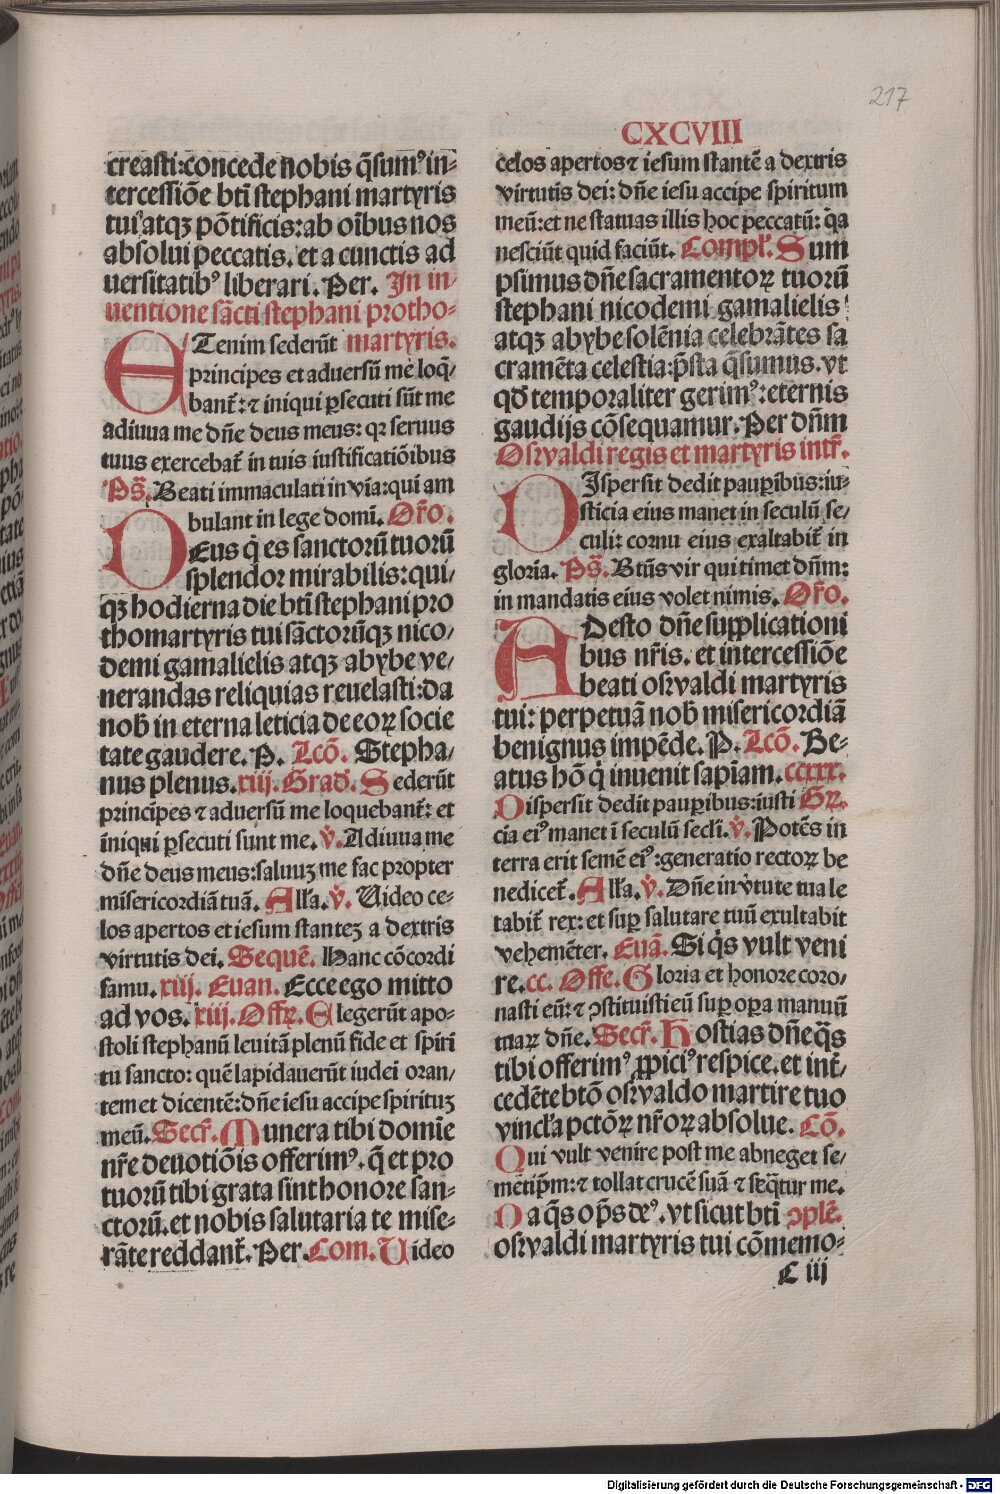 217
CXCVIII
creasti:concede nobis q̄sumꝰ in-
tercessiōe bt̄i stephani martyris
tui atqꝫ pōtificis:ab oībus nos
absolui peccatis. et a cunctis ad
uersitatibꝰ liberari. Per. In in-
uentione sācti stephani protho-
ETenim sederūt martyris.
principes et aduersū me loq̄-
bant᷑: ⁊ iniqui ꝑsecuti sūt me
adiuua me dn̄e deus meus: qꝛ seruus
tuus exercebat᷑ in tuis iustificatiōibus
Ps̄. Beati immaculati in via: qui am
bulant in lege domī. Or̄o.
DEus q̇ es sanctorū tuorū
splendor mirabilis: qui-
qꝫ hodierna die bt̄i stephani pro
thomartyris tui sāctorūqꝫ nico-
demi gamalielis atqꝫ abybe ve-
nerandas reliquias reuelasti: da
nob̄ in eterna leticia de eoꝝ socie
tate gaudere. P. Lcō. Stepha-
nus plenus. xiij. Grad̄. Sederūt
principes ⁊ aduersū me loquebant᷑: et
iniqui ꝑsecuti sunt me. v̇. Adiuua me
dn̄e deus meus: saluuꝫ me fac propter
misericordiā tuā. Alla. v̇. Uideo ce-
los apertos et iesum stanteꝫ a dextris
virtutis dei. Sequē. Hanc cōcordi
famu. xiij. Euan. Ecce ego mitto
ad vos. xiij. Offꝝ. Elegerūt apo-
stoli stephanū leuitā plenū fide et spirī
tu sancto: quē lapidauerūt iudei oran-
tem et dicentē: dn̄e iesu accipe spirituꝫ
meū. Secr̄. Munera tibi domīe
nr̄e deuotiōis offerimꝰ. q̄ et pro
tuorū tibi grata sint honore san-
ctorū. et nobis salutaria te mise-
rāte reddant᷑. Per. Com. Uideo
celos apertos ⁊ iesum stantē a dextris
virtutis dei: dn̄e iesu accipe spiritum
meū: et ne statuas illis hoc peccatū: q̇a
nesciūt quid faciūt. Compl̄. Sum
psimus dn̄e sacramentoꝝ tuorū
stephani nicodemi gamalielis
atqꝫ abybe solēnia celebrātes sa
cramēta celestia: p̄sta q̄sumus. vt
qd̄ temporaliter gerimꝰ: eternis
gaudijs cōsequamur. Per dn̄m
Osvvaldi regis et martyris intr̄.
DIspersit dedit pauꝑibus: iu-
sticia eius manet in seculū se-
culi: cornu eius exaltabit᷑ in
gloria. Ps̄. Bt̄us vir qui timet dn̄m:
in mandatis eius volet nimis. Or̄o.
ADesto dn̄e supplicationi
bus nr̄is. et intercessiōe
beati osvvaldi martyris
tui: perpetuā nob̄ misericordiā
benignus impēde. P. Lcō. Be-
atus hō q̇ inuenit sapīam. ccxxx.
Dispersit dedit pauꝑibus: iusti Gr̄.
cia eiꝰ manet ī seculū secl̄i. v̇. Potēs in
terra erit semē eiꝰ: generatio rectoꝝ be
nedicet᷑. Alla. v̇. Dn̄e in v̇tute tua le
tabit᷑ rex: et suꝑ salutare tuū exultabit
vehemēter. Euā. Si q̇s vult veni
re. cc. Offe. Gloria et honore coro-
nasti eū: ⁊ ꝯstituisti eū suꝑ oꝑa manuū
tuaꝝ dn̄e. Secr̄. Hostias dn̄e q̄s
tibi offerimꝰ ꝓpiciꝰ respice. et int̄-
cedēte btō osvvaldo martire tuo
vincl̄a pctōꝝ nr̄oꝝ absolue. Cō.
Qui vult venire post me abneget se-
metip̄m: ⁊ tollat crucē suā ⁊ seq̄tur me.
Da q̄s op̄s deꝰ. vt sicut bt̄i ꝯplē.
osvvaldi martyris tui cōmemo-
C iij
Digitalisierung gefördert durch die Deutsche Forschungsgemeinschaft - DFG